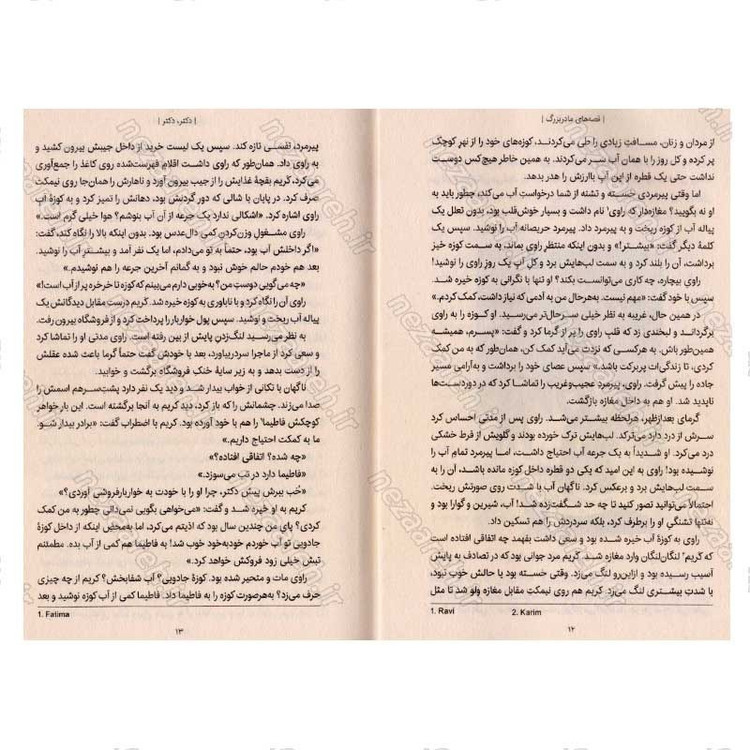 | قصه‌های مادربزرگ |
از مردان و زنان، مسافت زیادی را طی می‌کردند، کوزه‌های خود را از نهرِ کوچک
پر کرده و کل روز را با همان آب سر می‌کردند. به همین خاطر هیچ‌کس دوست
نداشت حتی یک قطره از این آب باارزش را هدر بدهد.
اما وقتی پیرمردی خسته و تشنه از شما درخواستِ آب می‌کند، چطور باید به
او نه بگویید؟ مغازه‌دار که راوی¹ نام داشت و بسیار خوش‌قلب بود، بدون تعلل یک
پیاله آب از کوزه ریخت و به پیرمرد داد. پیرمرد حریصانه آب را نوشید. سپس یک
کلمهٔ دیگر گفت: «بیشتر!» و بدون اینکه منتظر راوی بماند، به سمت کوزه خیز
برداشت، آن را بلند کرد و به سمت لب‌هایش برد و کل آبِ یک روزِ راوی را نوشید!
راویِ بیچاره، چه کاری می‌توانست بکند؟ او تنها با نگرانی به کوزه خیره شد.
سپس با خود گفت: «مهم نیست. به‌هرحال من به آدمی که نیاز داشت، کمک کردم.»
در همین حال، غریبه به نظر خیلی سرحال‌تر می‌رسید. او کوزه را به راوی
برگرداند و لبخندی زد که قلبِ راوی را پر از گرما کرد و گفت: «پسرم، همیشه
همین‌طور باش. به هرکسی که نزدت می‌آید کمک کن، همان‌طور که به من کمک
کردی، تا زندگی‌ات پربرکت باشد.» سپس عصای خود را برداشت و به‌آرامی مسیر
جاده را پیش گرفت. راوی، پیرمردِ عجیب‌وغریب را تماشا کرد که در دوردست‌ها
ناپدید شد. او هم به داخل مغازه بازگشت.
گرمای بعدازظهر، هرلحظه بیشتر می‌شد. راوی پس از مدتی احساس کرد
سرش از درد دارد می‌ترکد. لب‌هایش ترک خورده بودند و گلویش از فرط خشکی
درد می‌کرد. او شدیداً به یک جرعه آب احتیاج داشت، اما پیرمرد تمام آب را
نوشیده بود! راوی به این امید که یکی دو قطره داخل کوزه مانده باشد، آن را به
سمت لب‌هایش برد و برعکس کرد. ناگهان آب با شدت روی صورتش ریخت.
احتمالاً می‌توانید تصور کنید تا چه حد شگفت‌زده شد! آب، شیرین و گوارا بود و
نه‌تنها تشنگیِ او را برطرف کرد، بلکه سردردش را هم تسکین داد.
راوی به کوزهٔ آب خیره شده بود و سعی داشت بفهمد چه اتفاقی افتاده است
که کریم² لنگان‌لنگان وارد مغازه شد. کریم مرد جوانی بود که در تصادف به پایش
آسیب رسیده بود و ازاین‌رو لنگ می‌زد. وقتی خسته بود یا حالش خوب نبود،
با شدتِ بیشتری لنگ می‌زد. کریم هم روی نیمکت مقابل مغازه ولو شد تا مثل
1. Ravi 2. Karim
۱۲
| دکتر، دکتر |
پیرمرد، نفسی تازه کند. سپس یک لیست خرید از داخل جیبش بیرون کشید و
به راوی داد. همان‌طور که راوی داشت اقلام فهرست‌شده روی کاغذ را جمع‌آوری
می‌کرد، کریم بقچهٔ غذایش را از جیب بیرون آورد و ناهارش را همان‌جا روی نیمکت
صرف کرد. در پایان با شالی که دور گردنش بود، دهانش را تمیز کرد و به کوزهٔ آبِ
راوی اشاره کرد. «اشکالی ندارد یک جرعه از آن آب بنوشم؟ هوا خیلی گرم است.»
راوی مشغولِ وزن‌کردنِ کمی دال‌عدس بود. بدون اینکه بالا را نگاه کند، گفت:
«اگر داخلش آب بود، حتماً به تو می‌دادم، اما یک نفر آمد و بیشترِ آب را نوشید.
بعد هم خودم حالم خوش نبود و به گمانم آخرین جرعه را هم نوشیدم.»
«چه می‌گویی دوستِ من؟ به‌خوبی دارم می‌بینم که کوزه تا خرخره پر از آب است!»
راوی آن را نگاه کرد و با ناباوری به کوزه خیره شد. کریم درست مقابل دیدگانش یک
پیاله آب ریخت و نوشید. سپس پول خواربار را پرداخت کرد و از فروشگاه بیرون رفت.
به نظر می‌رسید لنگ‌زدنِ پایش از بین رفته است. راوی مدتی او را تماشا کرد
و سعی کرد از ماجرا سردربیاورد، بعد با خودش گفت حتماً گرما باعث شده عقلش
را از دست بدهد و به زیر سایهٔ خنکِ فروشگاه برگشت و خوابید.
ناگهان با تکانی از خواب بیدار شد و دید یک نفر دارد پشتِ‌سرهم اسمش را
صدا می‌زند. چشمانش را که باز کرد، دید کریم به آنجا برگشته است. این بار خواهر
کوچکش فاطیما¹ را هم با خود آورده بود. کریم با اضطراب گفت: «برادر بیدار شو.
ما به کمکت احتیاج داریم.»
«چه شده؟ اتفاقی افتاده؟»
«فاطیما دارد در تب می‌سوزد.»
«خُب ببرش پیش دکتر، چرا او را با خودت به خواربارفروشی آوردی؟»
کریم به او خیره شد و گفت: «می‌خواهی بگویی نمی‌دانی چطور به من کمک
کردی؟ پای من چندین سال بود که اذیتم می‌کرد، اما به‌محضِ اینکه از داخل کوزهٔ
جادویی تو آب خوردم خودبه‌خود خوب شد! به فاطیما هم کمی از آب بده. مطمئنم
تبش خیلی زود فروکش خواهد کرد.»
راوی مات و متحیر شده بود. کوزهٔ جادویی؟ آب شفابخش؟ کریم از چه چیزی
حرف می‌زد؟ به‌هرصورت کوزه را به فاطیما داد. فاطیما کمی از آب کوزه نوشید و بعد
1. Fatima
۱۳
nezaareh.ir